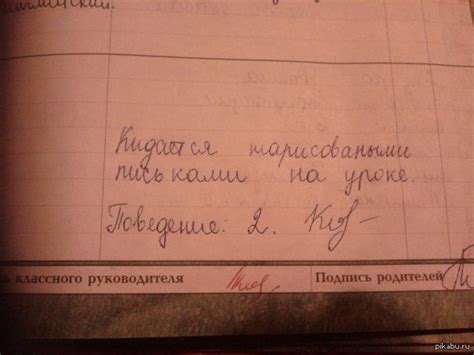 Кидается нарисоваными
письками на уроке.
Поведение: 2.
классного руководителя
Подпись родителей
pikabu.ru